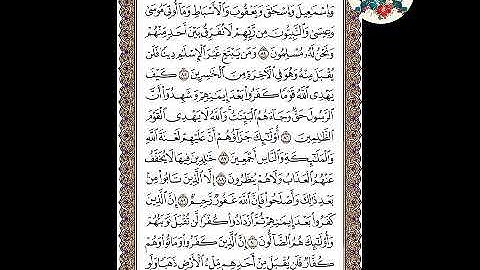 وَإِسْمَٰعِيلَ وَإِسْحَٰقَ وَيَعْقُوبَ وَٱلْأَسْبَاطِ وَمَآ أُوتِىَ مُوسَىٰ
وَعِيسَىٰ وَٱلنَّبِيُّونَ مِن رَّبِّهِمْ لَا نُفَرِّقُ بَيْنَ أَحَدٍ مِّنْهُمْ
وَنَحْنُ لَهُۥ مُسْلِمُونَ ٨٤ وَمَن يَبْتَغِ غَيْرَ ٱلْإِسْلَٰمِ دِينًا فَلَن
يُقْبَلَ مِنْهُ وَهُوَ فِى ٱلْءَاخِرَةِ مِنَ ٱلْخَٰسِرِينَ ٨٥ كَيْفَ
يَهْدِى ٱللَّهُ قَوْمًا كَفَرُوا۟ بَعْدَ إِيمَٰنِهِمْ وَشَهِدُوٓا۟ أَنَّ
ٱلرَّسُولَ حَقٌّ وَجَآءَهُمُ ٱلْبَيِّنَٰتُ وَٱللَّهُ لَا يَهْدِى ٱلْقَوْمَ
ٱلظَّٰلِمِينَ ٨٦ أُو۟لَٰٓئِكَ جَزَآؤُهُمْ أَنَّ عَلَيْهِمْ لَعْنَةَ ٱللَّهِ
وَٱلْمَلَٰٓئِكَةِ وَٱلنَّاسِ أَجْمَعِينَ ٨٧ خَٰلِدِينَ فِيهَا لَا يُخَفَّفُ
عَنْهُمُ ٱلْعَذَابُ وَلَا هُمْ يُنظَرُونَ ٨٨ إِلَّا ٱلَّذِينَ تَابُوا۟ مِنۢ
بَعْدِ ذَٰلِكَ وَأَصْلَحُوا۟ فَإِنَّ ٱللَّهَ غَفُورٌ رَّحِيمٌ ٨٩ إِنَّ ٱلَّذِينَ
كَفَرُوا۟ بَعْدَ إِيمَٰنِهِمْ ثُمَّ ٱزْدَادُوا۟ كُفْرًا لَّن تُقْبَلَ تَوْبَتُهُمْ
وَأُو۟لَٰٓئِكَ هُمُ ٱلضَّآلُّونَ ٩٠ إِنَّ ٱلَّذِينَ كَفَرُوا۟ وَمَاتُوا۟ وَهُمْ
كُفَّارٌ فَلَن يُقْبَلَ مِنْ أَحَدِهِم مِّلْءُ ٱلْأَرْضِ ذَهَبًا وَلَوِ